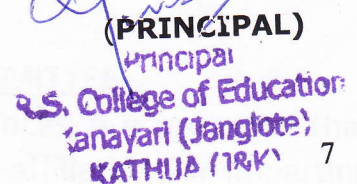 (PRINCIPAL)
Principal
R.S. College of Education
Janayari (Janglote)
KATHUA (J&K)
7